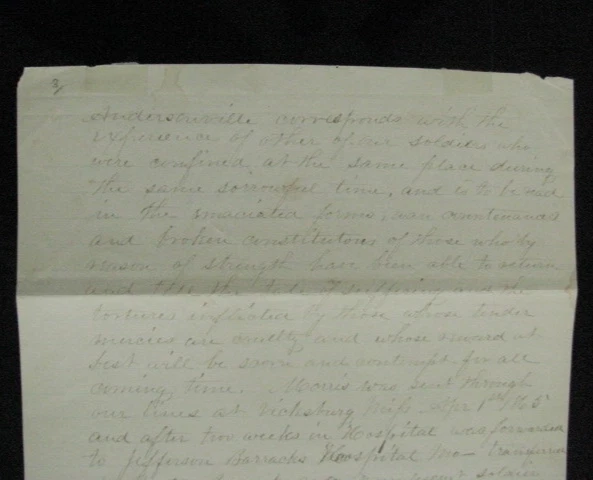 3/
Andersonville corresponds with the
experience of other of our soldiers who
were confined at the same place during
the same sorrowful time, and is to be read
in the emaciated forms, wan countenances
and broken constitutions of those who by
reason of strength have been able to return
and tell the tale of suffering and the
tortures inflicted by those whose tender
mercies are cruelty and whose reward at
best will be scorn and contempt for all
coming time. Morris was sent through
our lines at Vicksburg Miss. Apr 1st 1865
and after two weeks in Hospital was forwarded
to Jefferson Barracks Hospital Mo— transferred
soldier